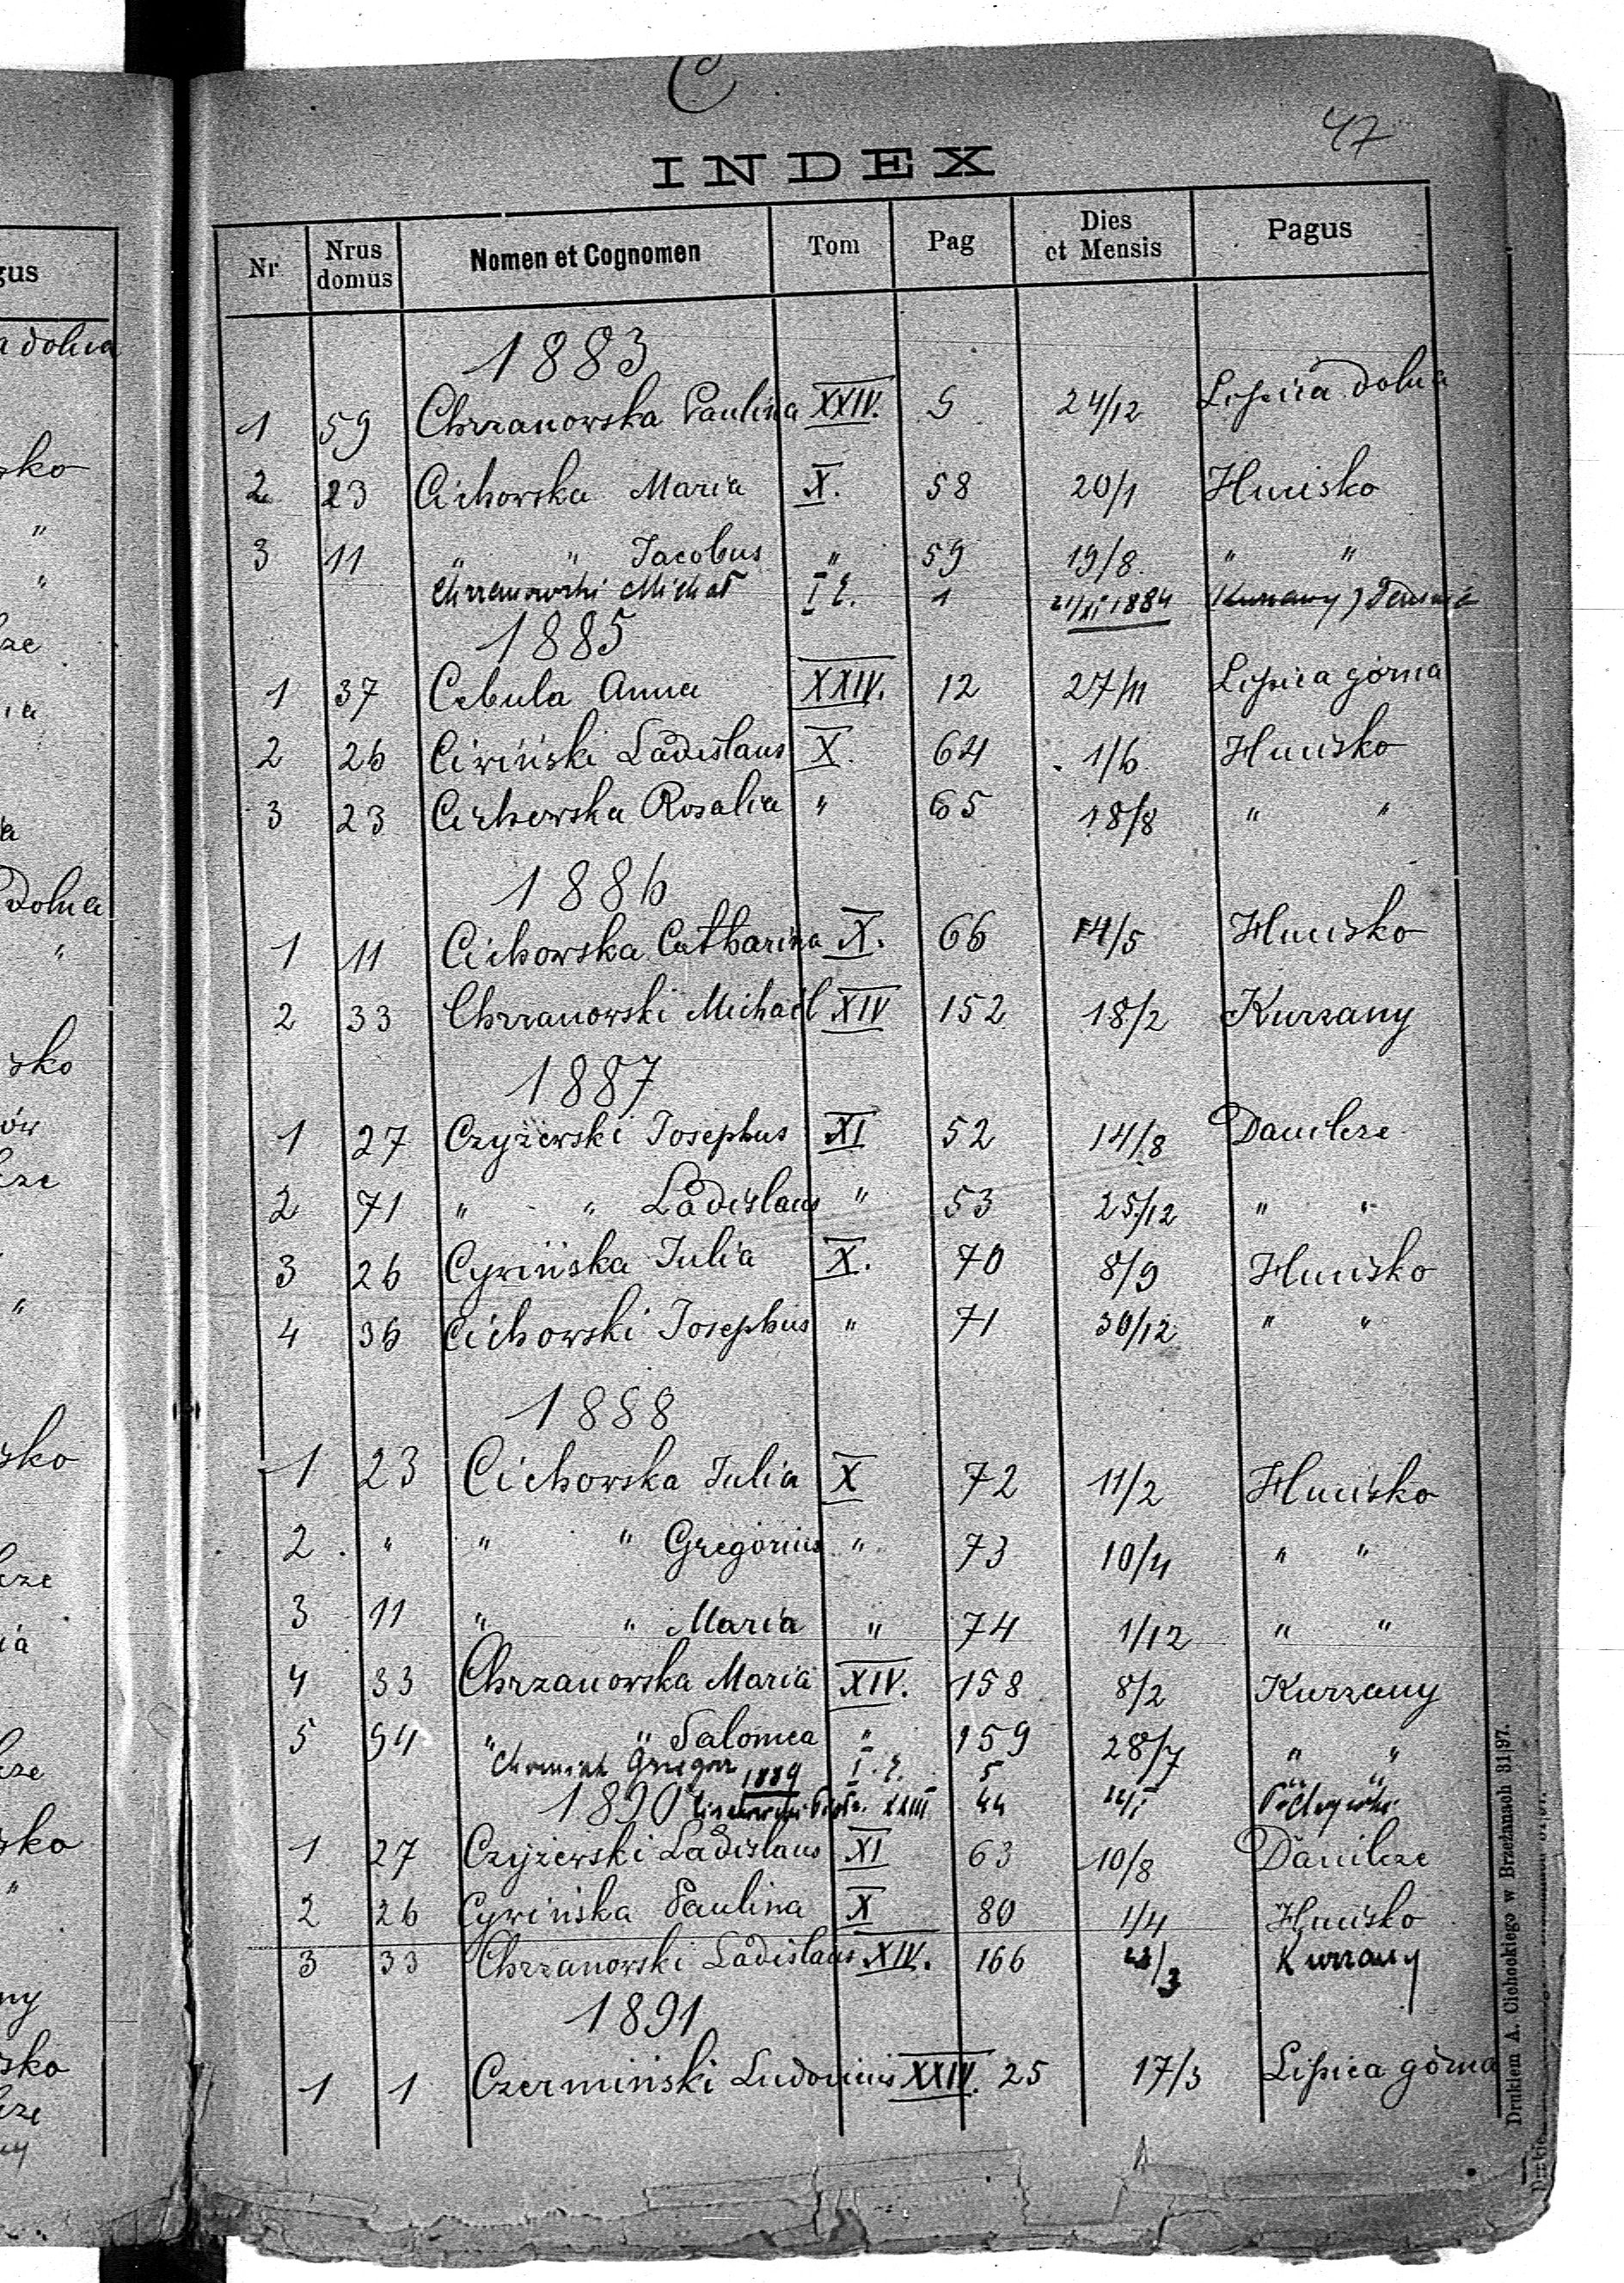 C
47
INDEX
Nr Nrus domus Nomen et Cognomen Tom Pag Dies et Mensis Pagus
1883
1 59 Chrzanowska Paulina XXIV. 5 24/12 Lipica dolna
2 23 Cichowska Maria X. 58 20/1 Hucisko
3 11 " " Jacobus " 59 19/8 " "
Chrzanowski Michał I 1 21/XI 1884 Kurzany
1885
1 37 Cebula Anna XXIV. 12 27/11 Lipica górna
2 26 Ciwiński Ladislaus X. 64 1/6 Hucisko
3 23 Cichowska Rosalia " 65 18/8 " "
1886
1 11 Cichowska Catharina X. 66 14/5 Hucisko
2 33 Chrzanowski Michaël XIV 152 18/2 Kurzany
1887
1 27 Czyżewski Josephus XI 52 14/8 Danilcze
2 71 " " Ladislaus " 53 25/12 " "
3 26 Cywińska Julia X. 70 8/9 Hucisko
4 36 Cichowski Josephus " 71 30/12 " "
1888
1 23 Cichowska Julia X 72 11/2 Hucisko
2 " " " Gregorius " 73 10/4 " "
3 11 " " Maria " 74 1/12 " "
4 33 Chrzanowska Maria XIV. 158 8/2 Kurzany
5 94 " " Salomea " 159 28/7 " "
Grzegorz 1889 I. 5 " "
1890 XXIII 44
1 27 Czyżewski Ladislaus XI 63 10/8 Danilcze
2 26 Cywińska Paulina X 80 1/4 Hucisko
3 33 Chrzanowski Ladislaus XIV. 166 Kurzany
1891
1 1 Czermiński Ludovicus XXIV. 25 17/3 Lipica górna
Drukiem A. Cichockiego w Brzeżanach 31|97.